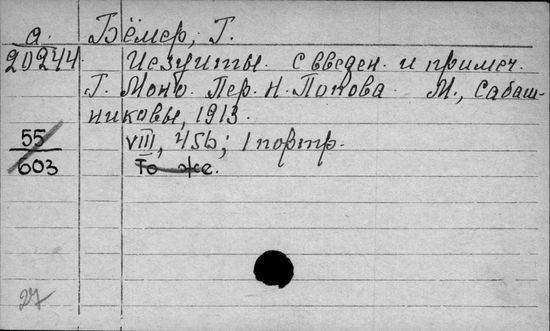 а. Бёмер, Г.
20244. Иезуиты. С введен. и примеч.
Г. Моно. Пер. Н. Попова М., Сабаш-
никовы, 1913.
55 VIII, 456; 1 портр.
603 То же.
27